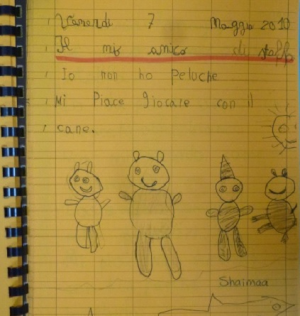 Venerdi 7 Maggio 2010
Il mio amico di stoffa
Io non ho Peluche
Mi Piace giocare con il
cane.
Shaimaa